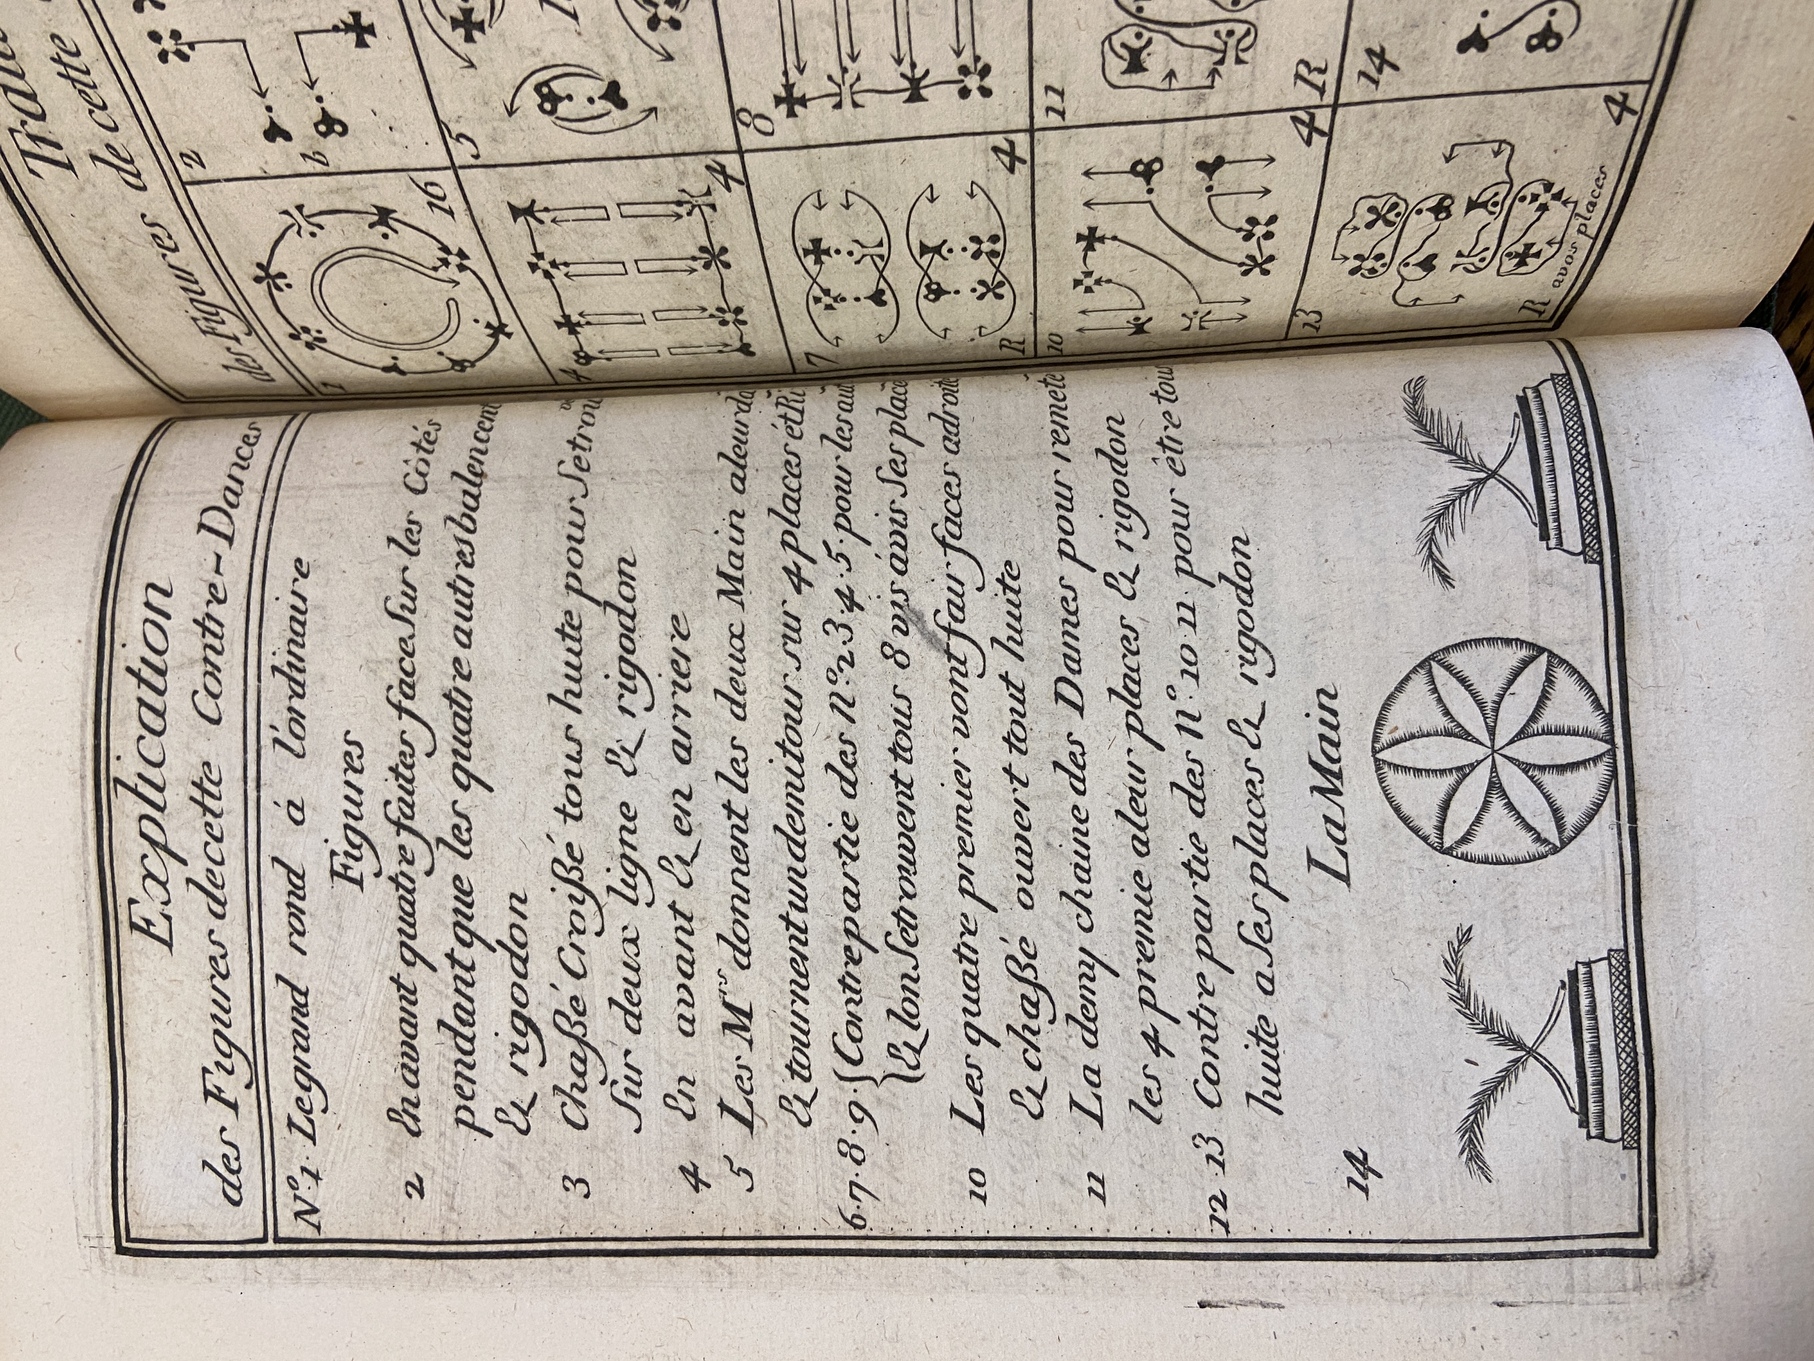 Explication
des Figures decette Contre-Dances
N.º 1. Legrand rond á l'ordinaire
Figures
2 En avant quatre faites face sur les Côtés
pendant que les quatre autres balencent
& rigodon
3 Chassé Croissé tous huite pour se trouv
sur deux ligne & rigodon
4 En avant & en arriere
5 Les M.rs donnent les deux Main aleurda
& tournent un demi tour sur 4 places et Ri
6.7.8.9. Contrepartie des N.º 2 3 4. 5. pour les aut
& lon se trouvent tous 8 vis ávis ses place
10 Les quatre premier vont fair faces adroite
& chassé ouvert tout huite
11 La demy chaine des Dames pour remete
les 4 premie aleur places & rigodon
12 13 Contre partie des N.º 10 11 pour être tou
huite a ses places & rigodon
14 La Main
de cette
des Figures
1
16
2
b
4
4
5
7
R
4
8
10
4
11
R
13
R avos places
4
14